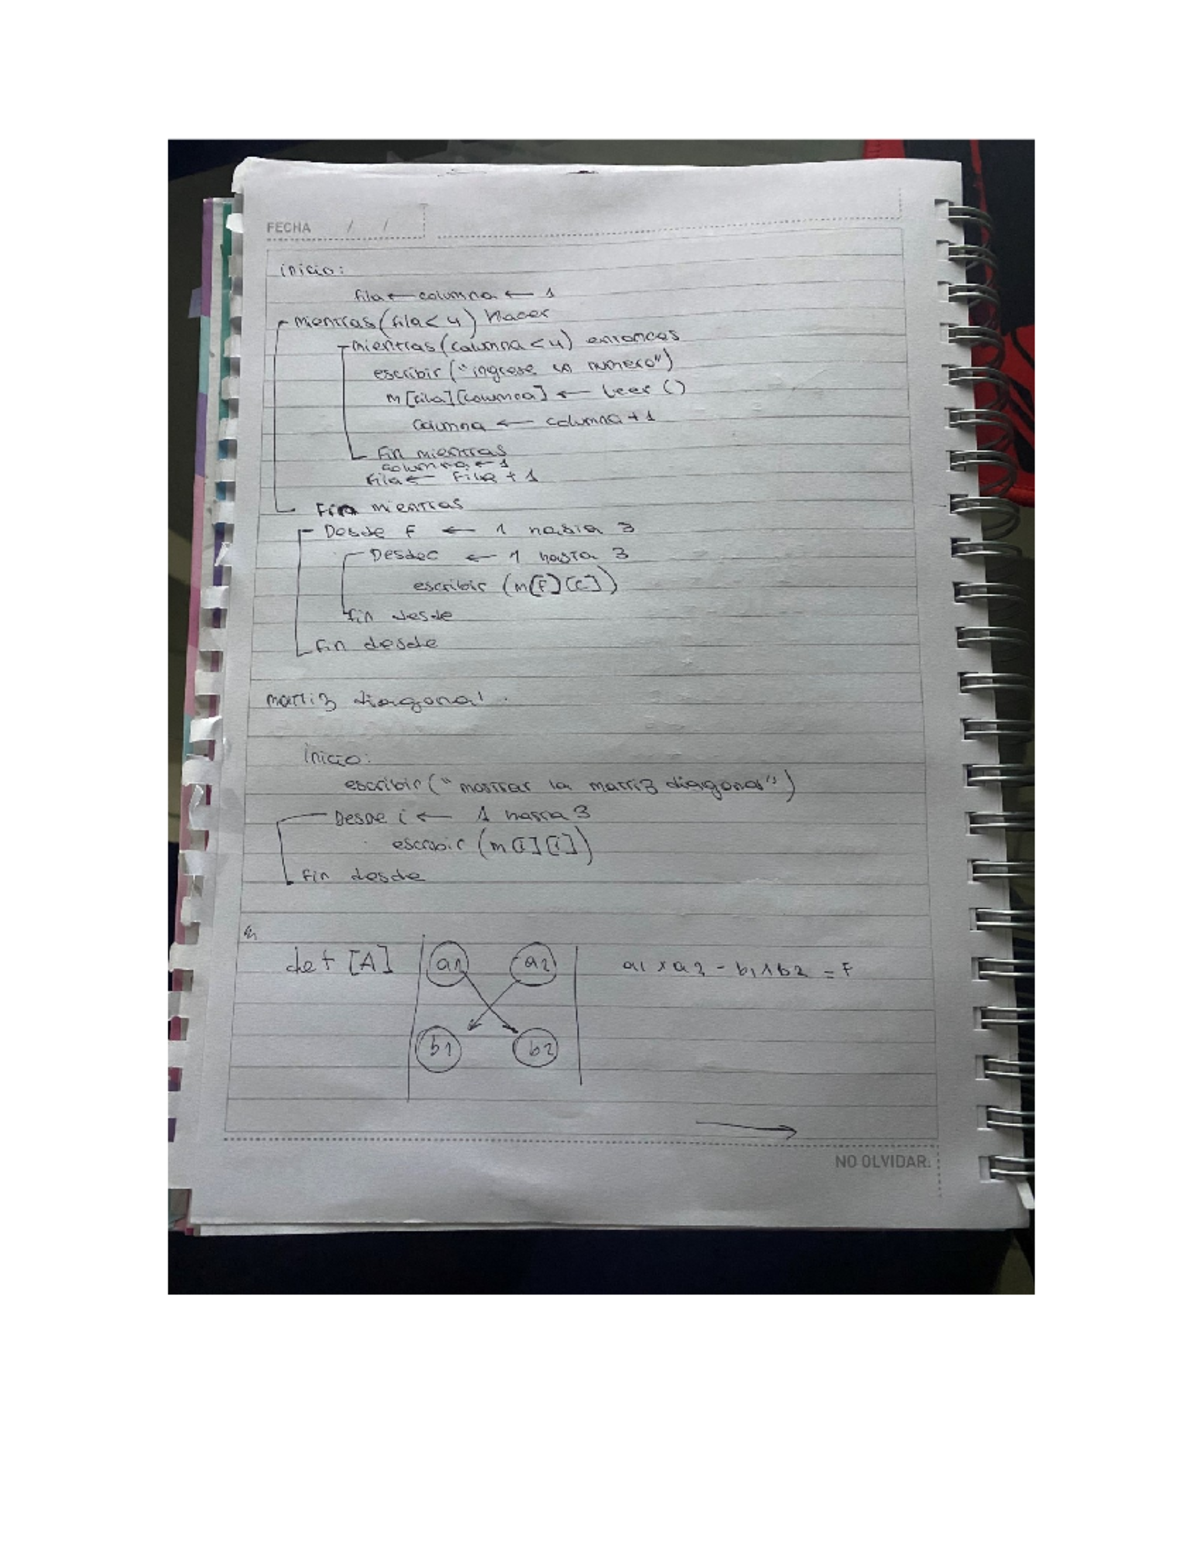 FECHA / /
inicio:
fila ← columna ← 1
mientras (fila < 4) Hacer
mientras (columna < 4) entonces
escribir ("ingrese un numero")
m [fila] [columna] ← Leer ()
columna ← columna + 1
Fin mientras
columna ← 1
fila ← Fila + 1
Fin mientras
Desde F ← 1 hasta 3
Desde c ← 1 hasta 3
escribir (m[F][c])
fin desde
fin desde
matriz diagonal.
inicio:
escribir ("mostrar la matriz diagonal")
Desde i ← 1 hasta 3
escribir (m[i][i])
Fin desde
det [A] a1 a2 a1 x a2 - b1 x b2 = F
b1 b2
NO OLVIDAR: